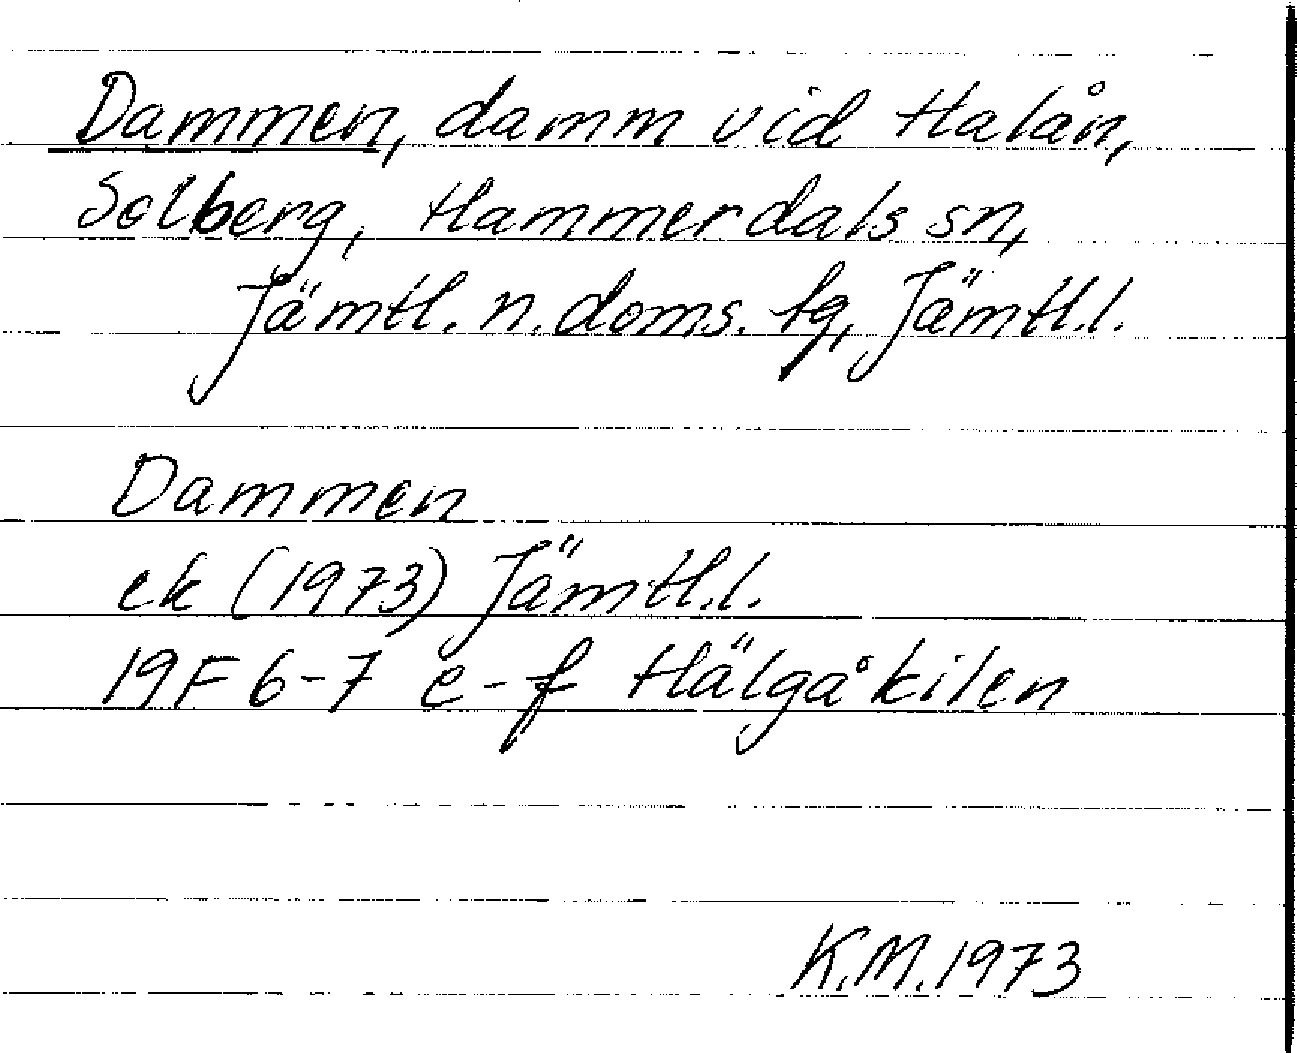 Dammen, damm vid Halån,
Solberg, Hammerdals sn,
Jämtl. n. doms. tg, Jämtl.l.
Dammen
ek (1973) Jämtl.l.
19F 6-7 e-f Hälgåkilen
K.M. 1973